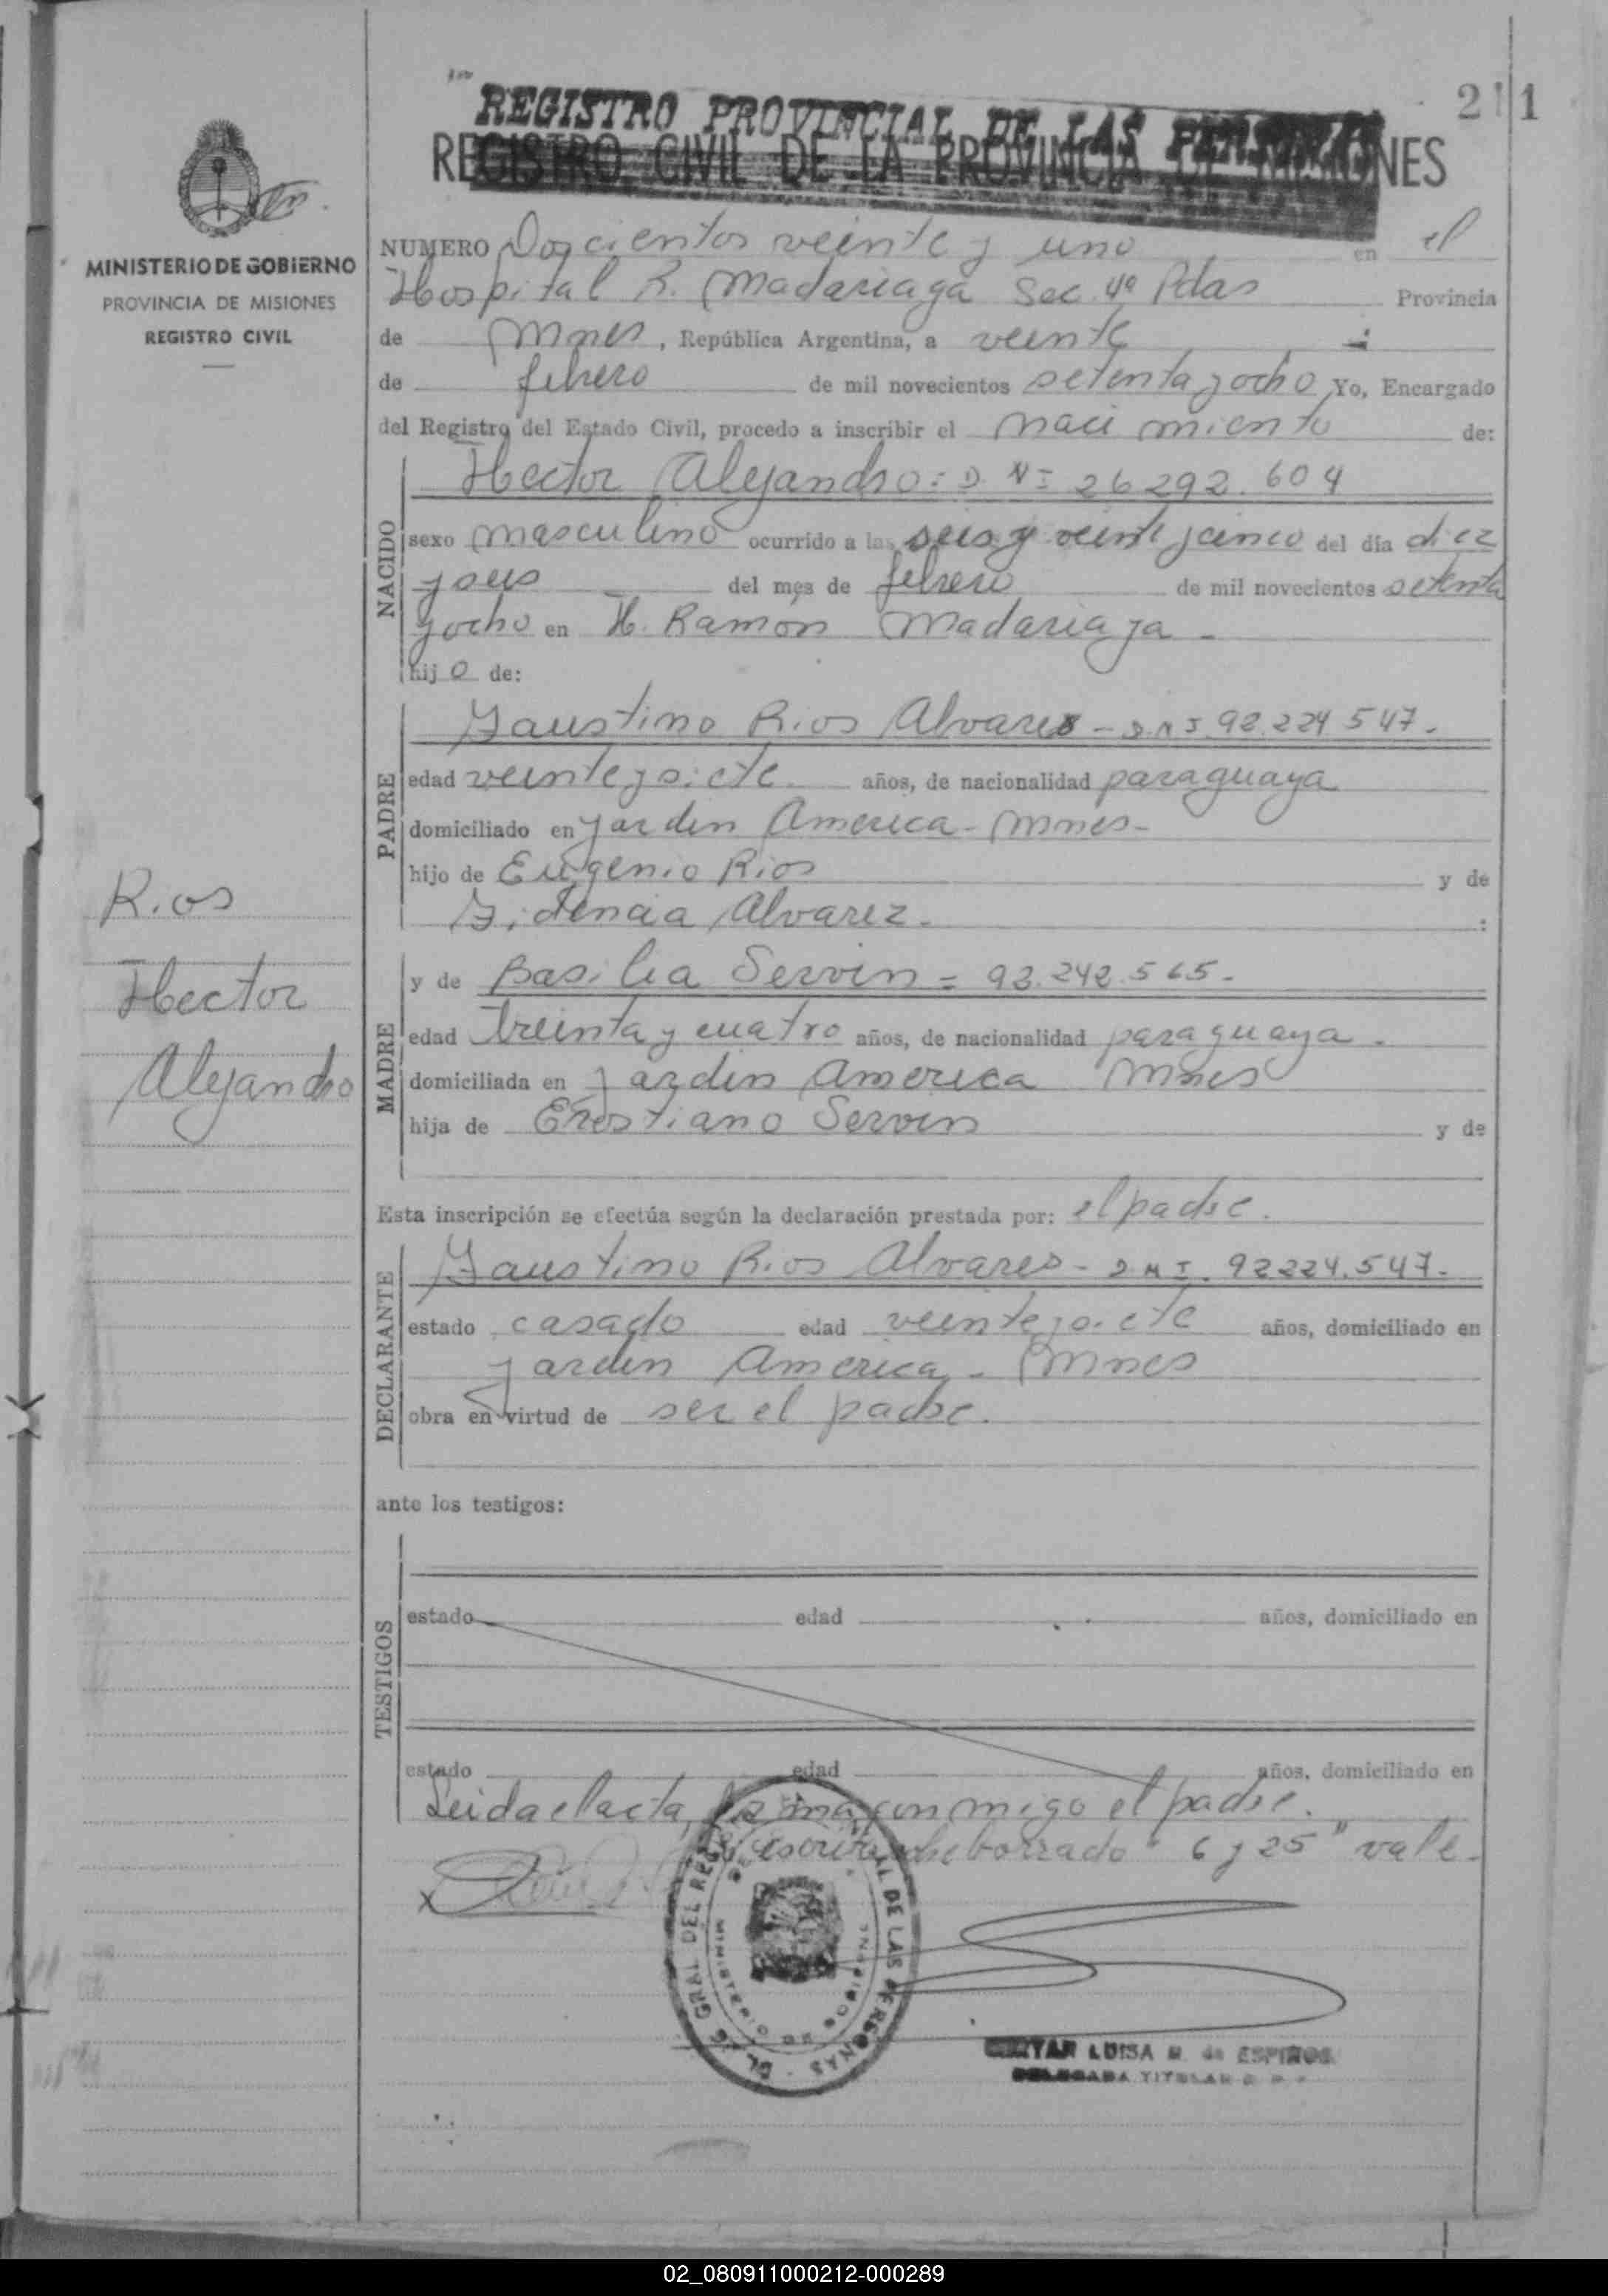 211
REGISTRO PROVINCIAL DE LAS PERSONAS
REGISTRO CIVIL DE LA PROVINCIA DE MISIONES
MINISTERIO DE GOBIERNO
PROVINCIA DE MISIONES
REGISTRO CIVIL
NUMERO Doscientos veinte y uno en el
Hospital R. Madariaga Sec. 4ª Pdas Provincia
de Mnes, República Argentina, a veinte
de febrero de mil novecientos setenta y ocho Yo, Encargado
del Registro del Estado Civil, procedo a inscribir el nacimiento de:
NACIDO
Hector Alejandro = D N I 26 292.604
sexo masculino ocurrido a las seis y veinte y cinco del día diez
y seis del mes de febrero de mil novecientos setenta
y ocho en H. Ramón Madariaga -
hijo de:
PADRE
Faustino Rios Alvares - D.N I. 92.224 547.
edad veinte y siete años, de nacionalidad paraguaya
domiciliado en Jardin America - Mnes -
hijo de Eugenio Rios y de
Fidencia Alvarez.
Rios
Hector
Alejandro
MADRE
y de Basilia Servin = 93.242.565.
edad treinta y cuatro años, de nacionalidad paraguaya.
domiciliada en Jardin America Mnes
hija de Cristiano Servin y de
Esta inscripción se efectúa según la declaración prestada por: el padre.
DECLARANTE
Faustino Rios Alvares - D N I. 92224.547.
estado casado edad veinte y siete años, domiciliado en
Jardin America - Mnes
obra en virtud de ser el padre.
ante los testigos:
TESTIGOS
estado edad años, domiciliado en
estado edad años, domiciliado en
Leida el acta, firma conmigo el padre.
borrado "6 y 25" vale.
GRAL DEL REG DE LAS PERSONAS
LUISA M. de ESPINOS
DELEGADA TITULAR
02_080911000212-000289